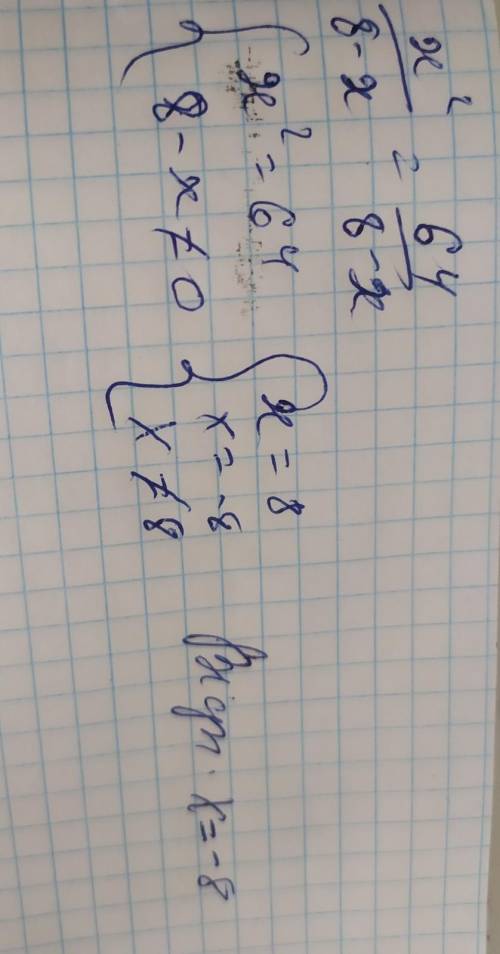 x² / 8-x = 64 / 8-x
{ x² = 64
8 - x ≠ 0
{ x = 8
x = -8
x ≠ 8
x = -8